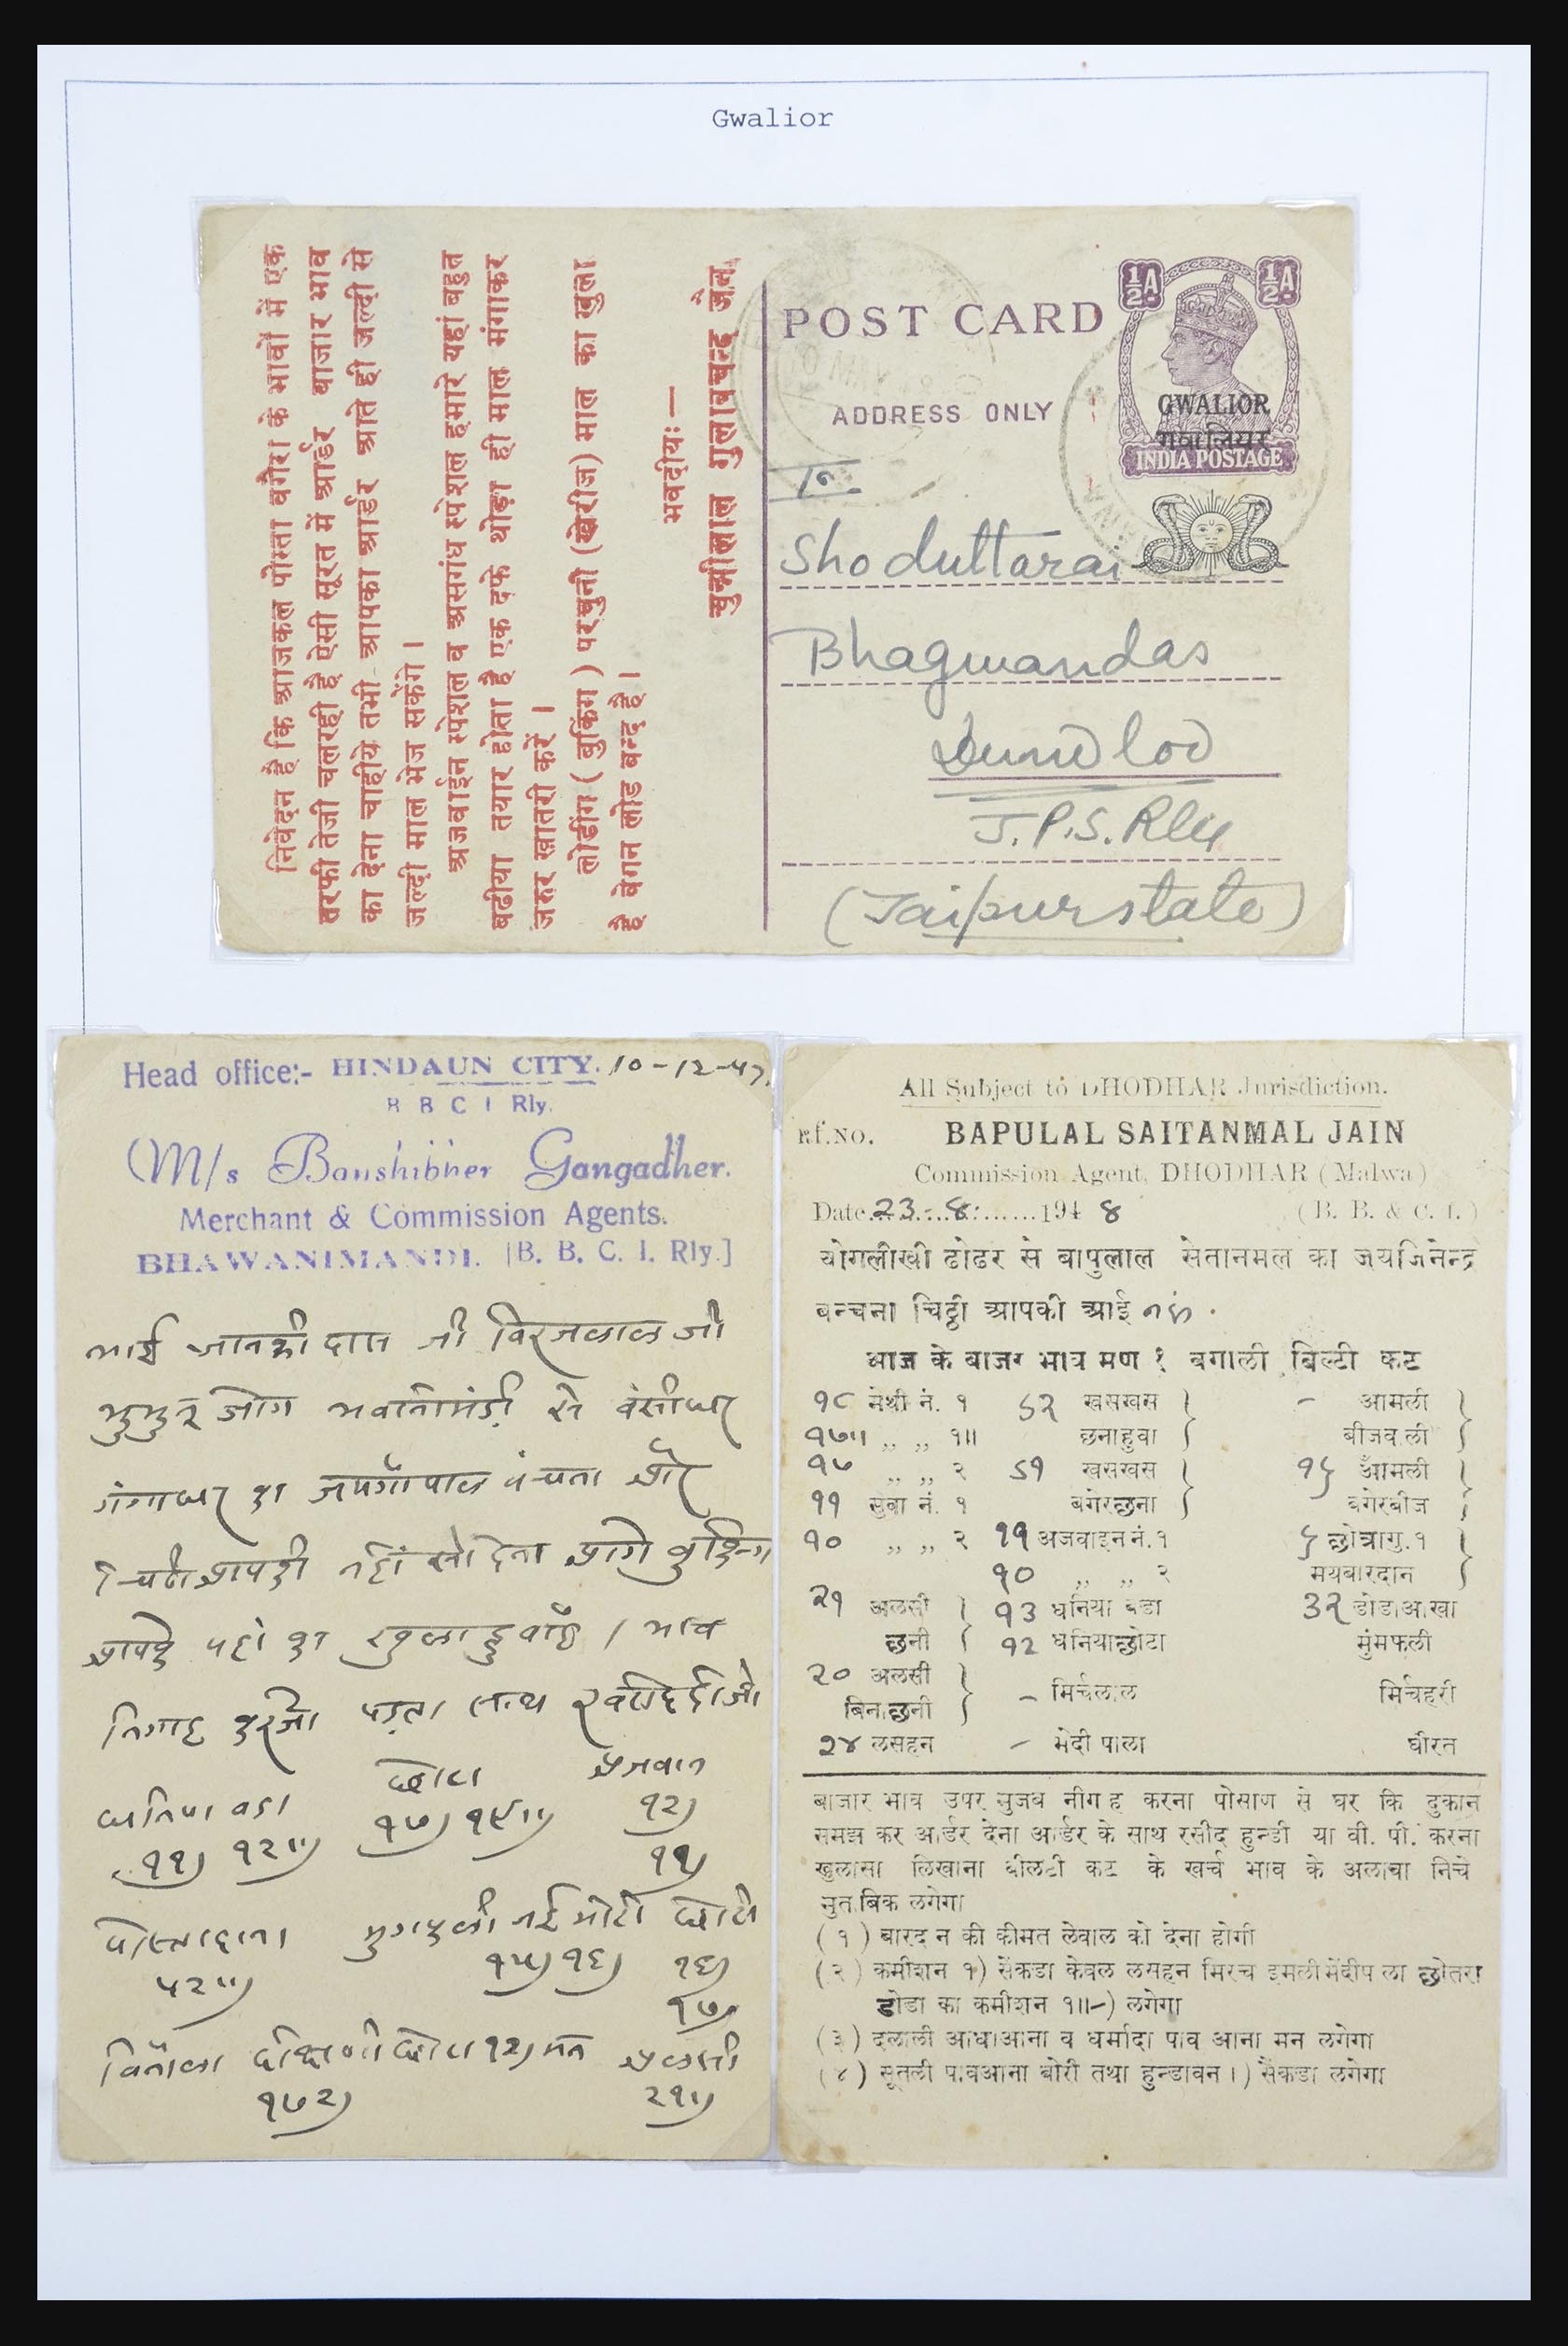 Gwalior
निवेदन है कि आजकल पोस्ता वगैरा के भावों में एक
तरफी तेजी चलरही है ऐसी सूरत में आर्डर बाजार भाव
का देना चाहीये तभी आपका आर्डर आते ही जल्दी से
जल्दी माल भेज सकेंगे ।
अजवाईन स्पेशल व असगंध स्पेशल हमारे यहां बहुत
बढीया तयार होता है एक दफे थोड़ा ही माल मंगाकर
जरुर खातरी करें ।
लोडींग ( बुकिंग ) परचुनी (खेरीज) माल का खुला
है वेगन लोड बन्द है ।
भवदीयः—
चुन्नीलाल गुलाबचन्द जैन.
POST CARD
½A ½A
ADDRESS ONLY
GWALIOR
गवालियर
INDIA POSTAGE
To.
Shoduttarai
Bhagwandas
Dundlod
J.P.S. Rly
(Jaipur state)
Head office:- HINDAUN CITY. 10-12-47.
B B C I Rly.
M/s Banshibher Gangadher.
Merchant & Commission Agents.
BHAWANIMANDI. [B. B. C. I. Rly.]
भाई जानकी दास जी विरजलाल जी
जोग भवानीमंडी से बंसीधर
गंगाधर का जयगोपाल बंचना और
चिठी आपकी नहीं सो देना आगे बुकिंग
आपके यहां का खुला हुवा है । भाव
निगाह करजो
छोटा अजवान
धनिया बडा १७) १९॥) १२)
११) १२॥) ११)
पोस्तादाना मुगफली नई मोटी छोटी
५२॥) १५) १६) १६)
१७)
विनोला छोटा १२) मन अलसी
१७२) २१॥)
All Subject to DHODHAR Jurisdiction.
Rf. NO. BAPULAL SAITANMAL JAIN
Commission Agent, DHODHAR (Malwa)
Date 23-8-1948 (B. B. & C. I.)
योगलीखी ढोढर से बापुलाल सेतानमल का जयजिनेन्द्र
बन्चना चिठ्ठी आपकी आई नहीं.
आज के बाजर भाव मण १ बगाली बिल्टी कट
१८ मेथी नं. १ ६२ खसखस } — आमली }
१७॥ ,, ,, १॥ छनाहुवा } बीजवाली }
१७ ,, ,, २ ६१ खसखस } १६ आँमली }
११ सुवा नं. १ बगेरछना } बगेरबीज }
१० ,, ,, २ ११ अजवाइन नं. १ ६ छोत्रागु. १ }
१० ,, ,, २ मयबारदान }
२१ अलसी } १३ धनिया बडा ३२ डोडाआखा
छनी } १२ धनियाछोटा मुंमफली
२० अलसी }
बिनाछनी } — मिर्चलाल मिर्चहरी
२४ लसहन — मेदी पाला घीरत
बाजार भाव उपर मुजब नीगाह करना पोसाण से घर कि दुकान
समझ कर आर्डर देना आर्डर के साथ रसीद हुन्डी या वी. पी. करना
खुलासा लिखाना बीलटी कट के खर्च भाव के अलावा निचे
मुताबिक लगेगा
( १ ) बारदान की कीमत लेवाल को देना होगी
( २ ) कमीशन १) सेंकडा केवल लसहन मिरच इमली मेंदीपाला छोतरा
डोडा का कमीशन १॥-) लगेगा
( ३ ) दलाली आधाआना व धर्मादा पाव आना मन लगेगा
( ४ ) सूतली पावआना बोरी तथा हुन्डावन ।) सैकडा लगेगा